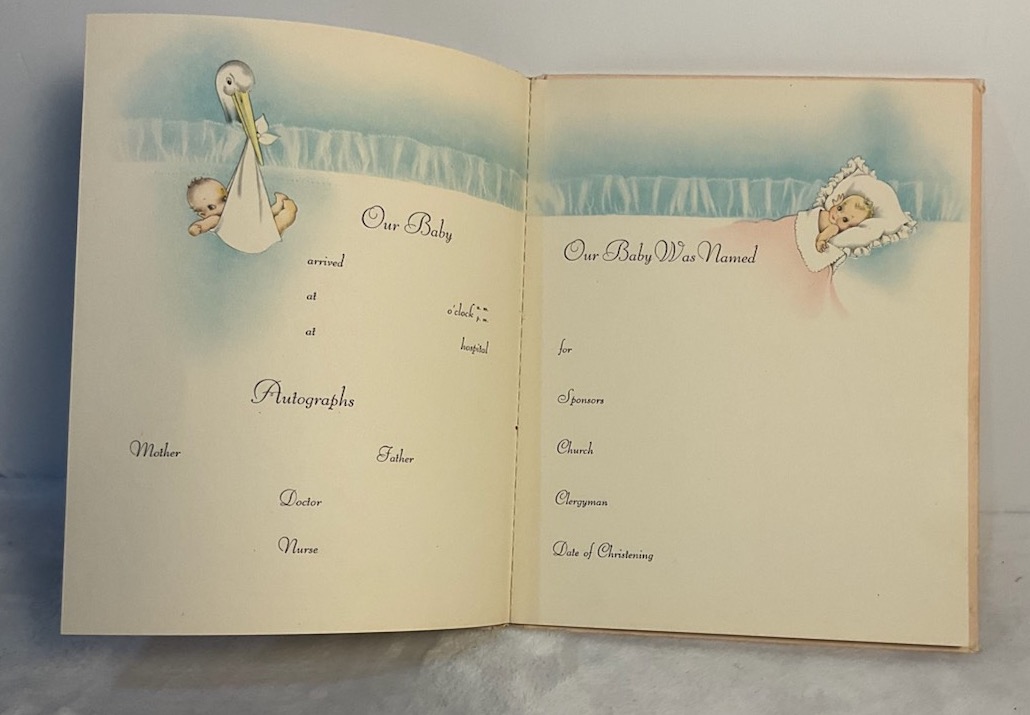 Our Baby
arrived
at
o'clock a. m.
p. m.
at
hospital
Autographs
Mother Father
Doctor
Nurse
Our Baby Was Named
for
Sponsors
Church
Clergyman
Date of Christening